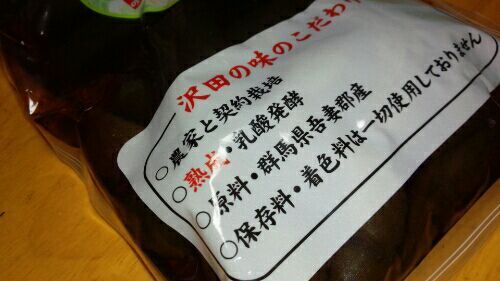 沢田の味のこだわり
○農家と契約栽培
○熟成・乳酸発酵
○原料・群馬県吾妻郡産
○保存料・着色料は一切使用しておりません